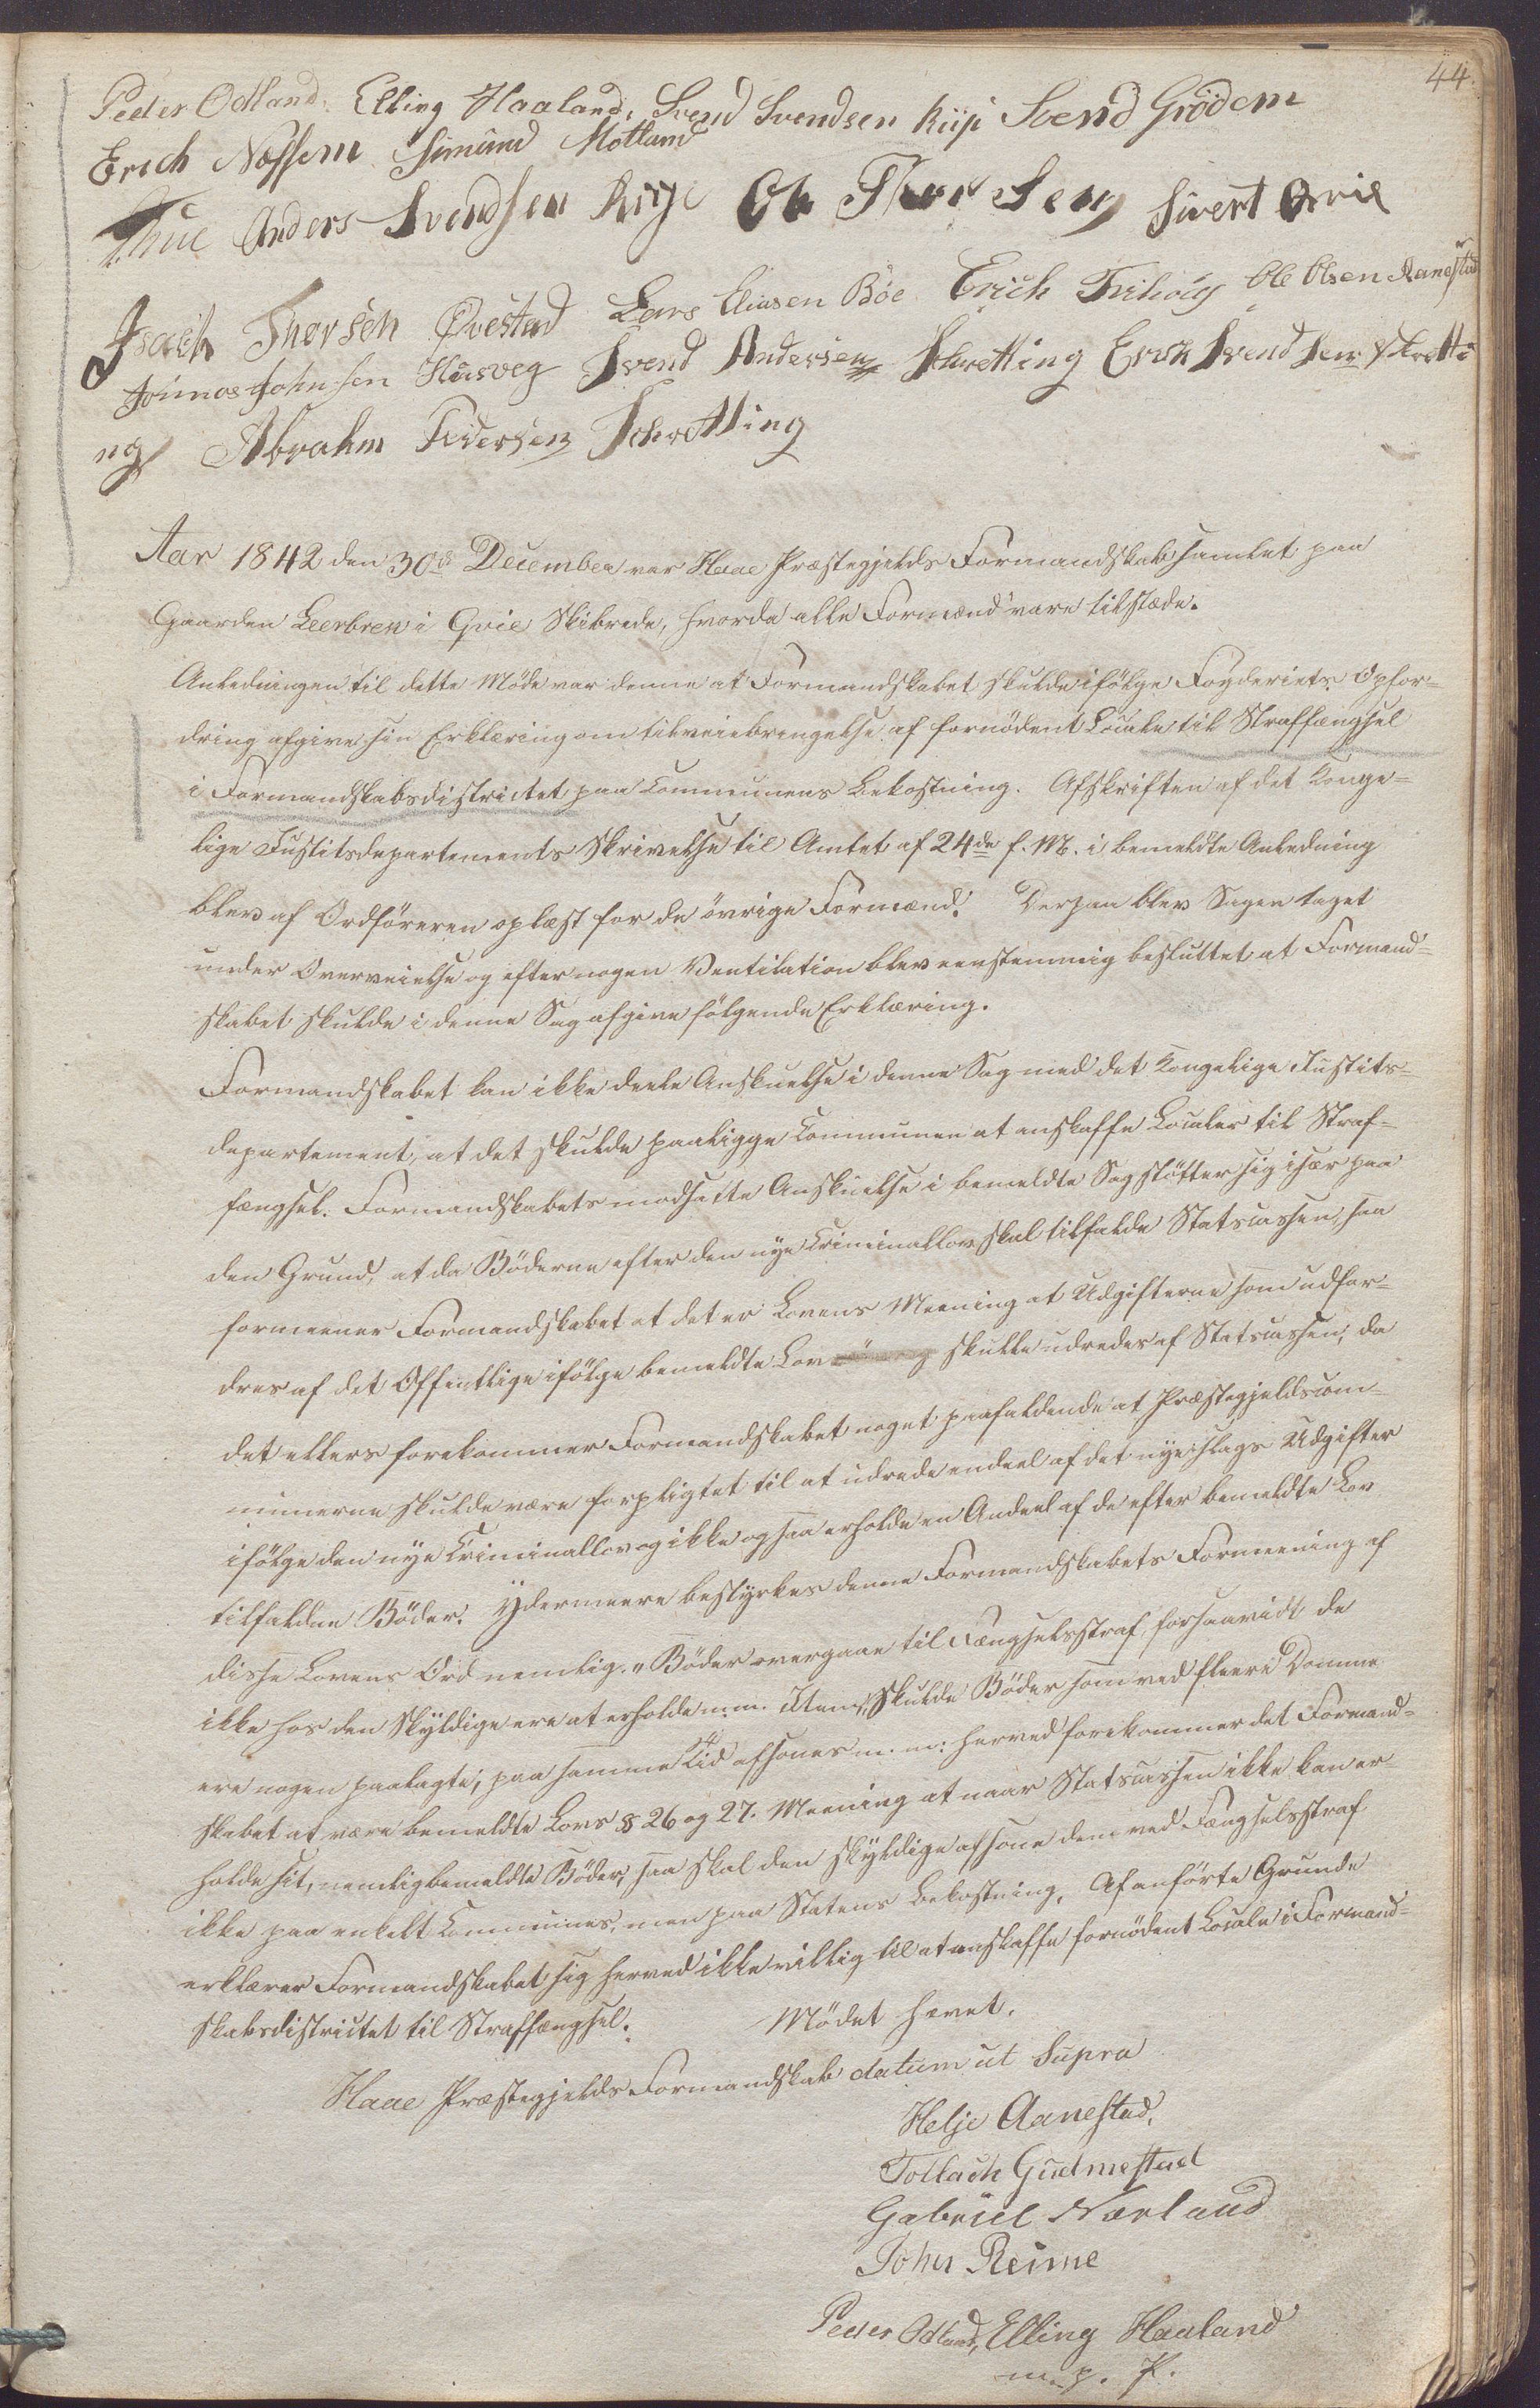 44.
Peder Odland, Elling Haaland, Svend Svendsen Riije Svend Grödem
Erich Nossem Simund Motland
Thue Anders Svendsen Riije Ole Thorsen Sivert Qvie
Isaach Thorsen Qvestad Lars Eliasen Böe Erich Frihoug Ole Olsen Aanestad
Jonnas Johnsen Husveg Svend Andersen Schretting Erich Svendsen Skretti
ng Abrahm Pedersen Schretting
Aar 1842 den 30te December var Haae Præstegjelds Formandskab samlet paa
Gaarden Leerbrek i Qvie Skibrede, hvorda alle Formænd vare tilstæde.
Anledningen til dette Møde var denne at Formandskabet skulde ifölge Fogderiets Opfor-
dring afgive sin Erklæring om tilveiebringelse af fornödent Locale til Straffængsel
i Formandskabsdistrictet paa Communens Bekostning. Afskriften af det Konge-
lige Justitsdepartements Skrivelse til Amtet af 24de f. M. i bemeldte Anledning
blev af Ordföreren oplæst for de övrige Formænd. Derpaa blev Sagen taget
under Overveielse og efter nogen Ventilation blev eenstemmig besluttet at Formand-
skabet skulde i denne Sag afgive fölgende Erklæring.
Formandskabet kan ikke deele Anskuelse i denne Sag med det Kongelige Justits-
departement, at det skulde paaligge Communen at anskaffe Localer til Straf-
fængsel. Formandskabets modsatte Anskuelse i bemeldte Sag stötter sig især paa
den Grund, at da Böderne efter den nye Criminallov skal tilfalde Statscassen, saa
formeener Formandskabet at det er Lovens Meening at Udgifterne som udfor-
dres af det Offentlige ifölge bemeldte Lov skulle udredes af Statscassen, da
det ellers forekommer Formandskabet noget paafaldende at Præstegjeldscom-
munerne skulde være forpligtet til at udrede endeel af det nye slags Udgifter
ifölge den nye Criminallov og ikke ogsaa erholde en Andeel af de efter bemeldte Lov
tilfaldne Böder. Ydermeere bestyrkes denne Formandskabets Formeening af
disse Lovens Ord nemlig. "Böder overgaae til Fængselsstraf, forsaavidt de
ikke hos den Skyldige ere at erholde m.m. Item, Skulde Böder som ved fleere Domme
ere nogen paalagte, paa samme Tid afsones m. m: herved forekommer det Formand-
skabet at være bemeldte Lovs § 26 og 27. Meening at naar Statscassen ikke kan er-
holde sit, nemlig bemeldte Böder, saa skal den skyldige afsone dem ved Fængselsstraf
ikke paa enkelt Communes, men paa Statens Bekostning. Af anförte Grunde
erklærer Formandskabet sig herved ikke villig til at anskaffe fornödent Locale i Formand-
skabsdistrictet til Straffængsel. Mödet hævet.
Haae Præstegjelds Formandskab datum ut Supra
Helje Aanestad,
Tollach Gudmestad
Gabriel Nærland
John Reime
Peder Odland, Elling Haaland
m. p. P.